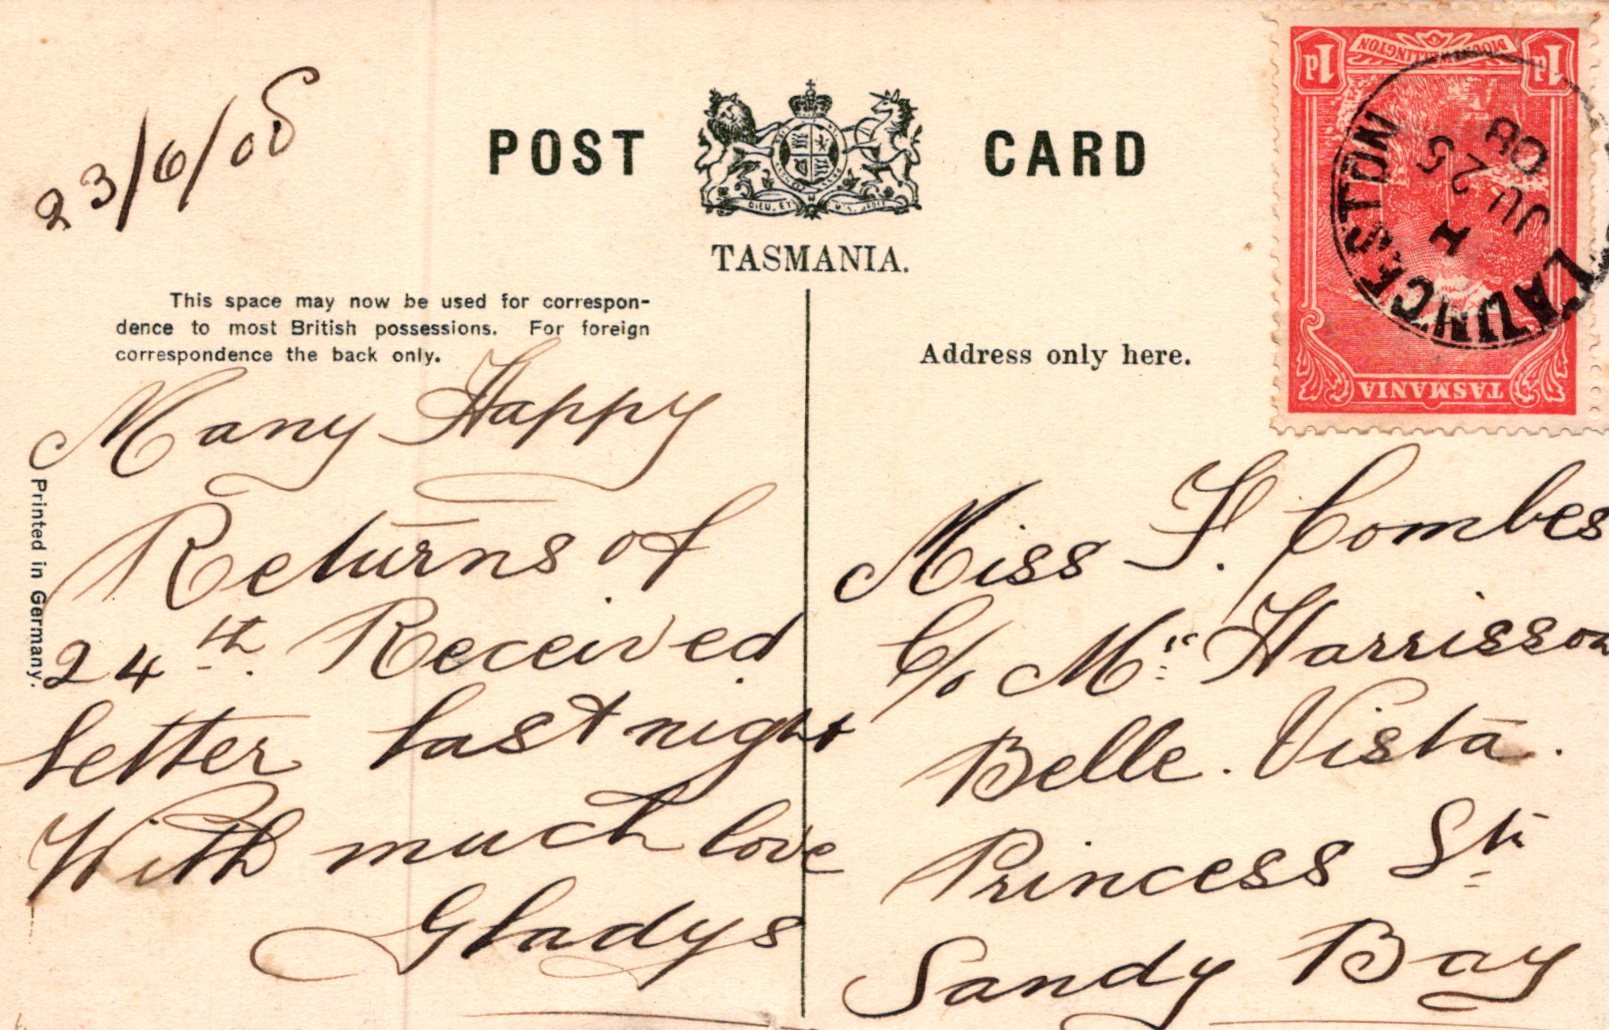 23/6/08
POST CARD
DIEU ET
TASMANIA.
This space may now be used for correspon-
dence to most British possessions. For foreign
correspondence the back only.
Many Happy
Returns of
24th. Received
letter last night
With much love
Gladys
Printed in Germany.
1d 1d
MOUNT WELLINGTON
TASMANIA
LAUNCESTON
1
JU 25
08
Address only here.
Miss F. Combes
C/o Mrs Harrisson
Belle. Vista.
Princess St
Sandy Bay